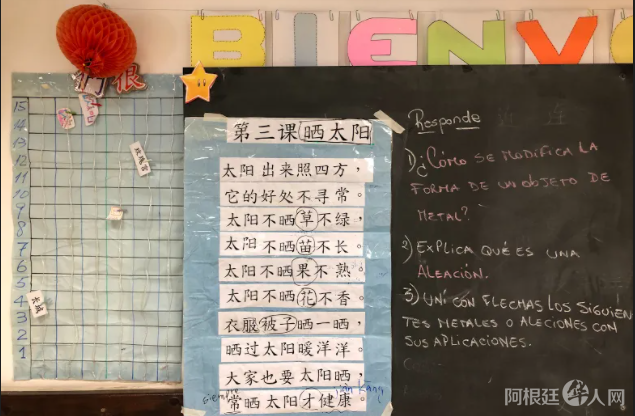 BIENV
们很
15
14
13
12
11
10
9
8
7
6
5
4
3
2
1
长城
第三课 晒太阳
太阳出来照四方，
它的好处不寻常。
太阳不晒草不绿，
太阳不晒苗不长。
太阳不晒果不熟。
太阳不晒花不香。
衣服被子晒一晒，
晒过太阳暖洋洋。
大家也要太阳晒，
常晒太阳才健康。
siempre
jiàn kāng
Responde
1) ¿CÓMO SE MODIFICA LA
FORMA DE UN OBJETO DE
METAL?
2) EXPLICA QUÉ ES UNA
ALEACIÓN.
3) UNÍ CON FLECHAS LOS SIGUIEN
TES METALES O ALECIONES CON
SUS APLICACIONES.
阿根廷华人网